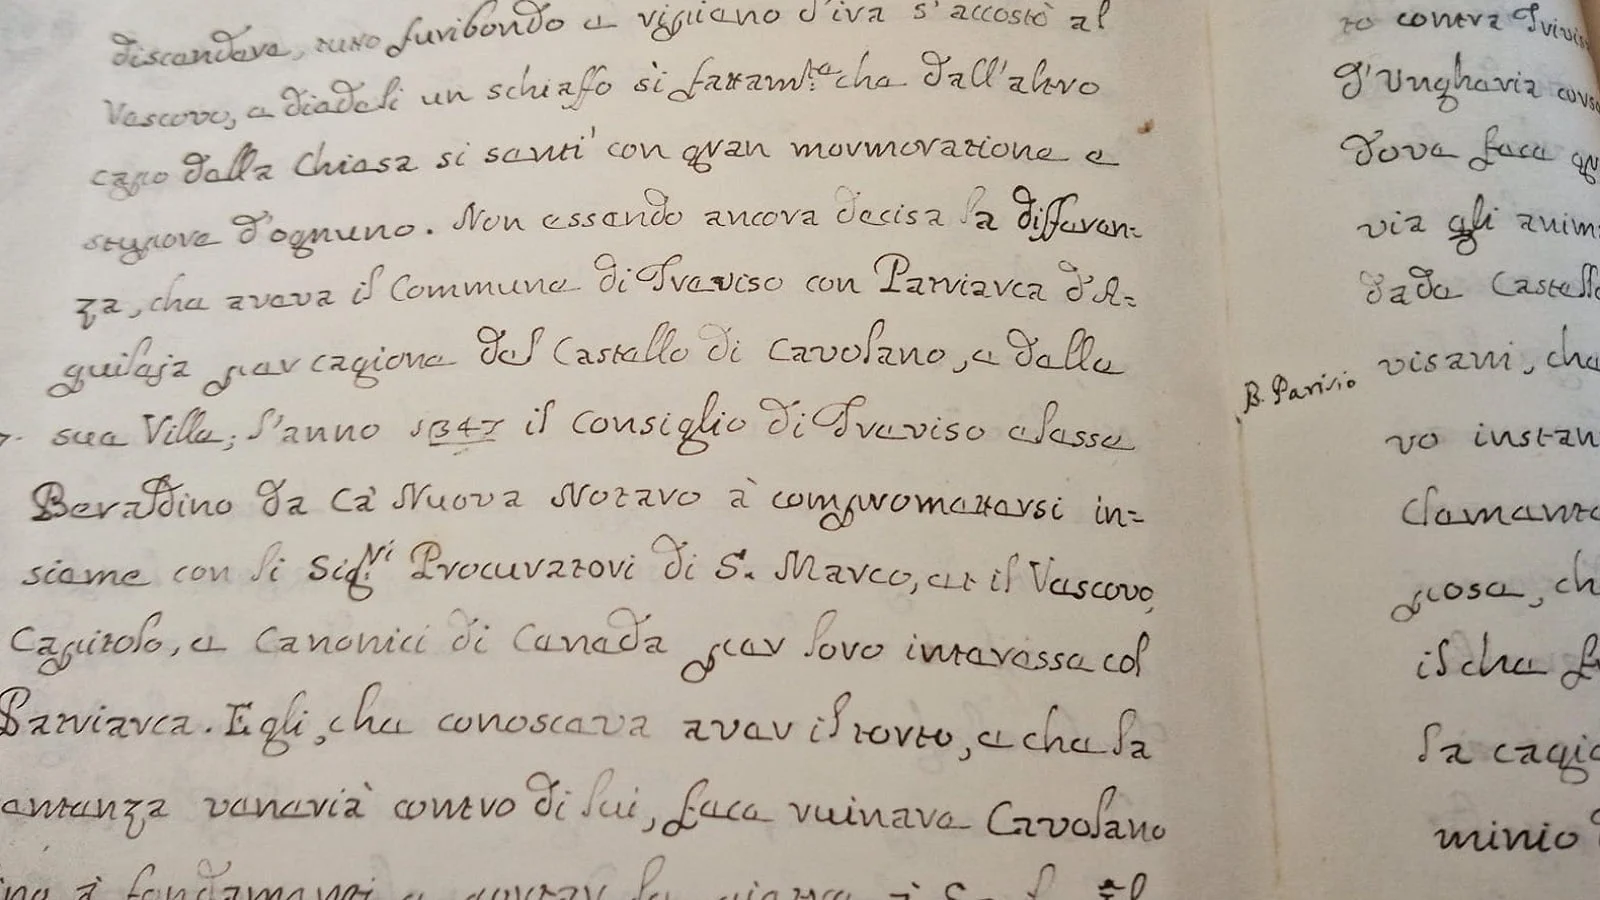 discendere, tutto furibondo e vigliano d'ira s'accostò al
Vescovo, e diedeli un schiaffo sì fattam.te che dall'altro
capo della Chiesa si sentì con gran mormoratione e
stupore d'ognuno. Non essendo ancora decisa la differen=
za, che aveva il Commune di Treviso con Patriarca d'A=
quileja per cagione del Castello di Cavolano, e della
sua Villa; l'anno 1347 il Consiglio di Treviso elesse
Beraldino da Ca' Nuova Notaro à compromettersi in=
sieme con li Sig.ri Procuratori di S. Marco, et il Vescovo,
Capitolo, e Canonici di Ceneda per loro interesse col
Patriarca. Egli, che conosceva aver il torto, e che la
sentenza veneria' contro di lui, fece ruinare Cavolano
à fondamenti e
B. Parisio
to contra Trivis
d'Ungharia cors
dove fece qu
via gli anim
dade Castell
visani, che
vo instan
clemente
posa, ch
il che f
la cagio
minio d